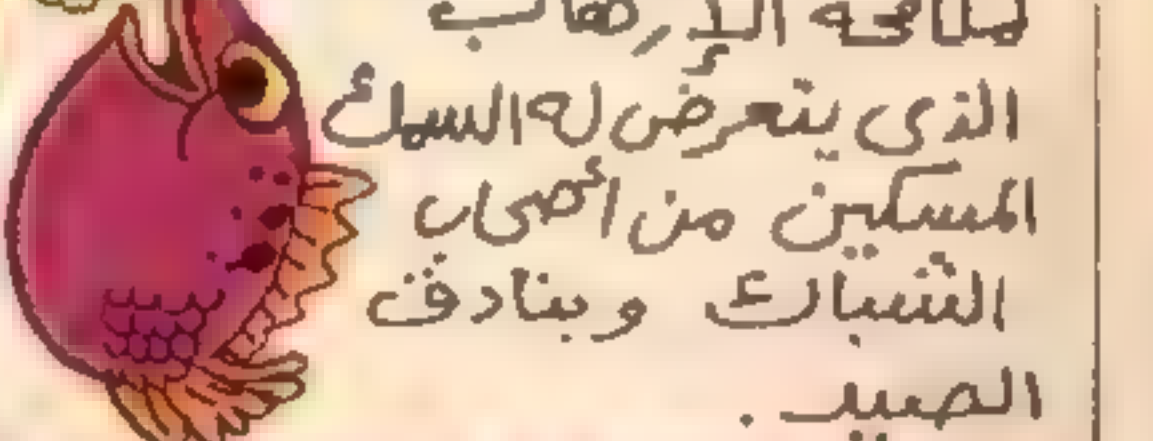 لمكافحة الإرهاب
الذى يتعرض له السمك
المسكين من أصحاب
الشباك وبنادق
الصيد .